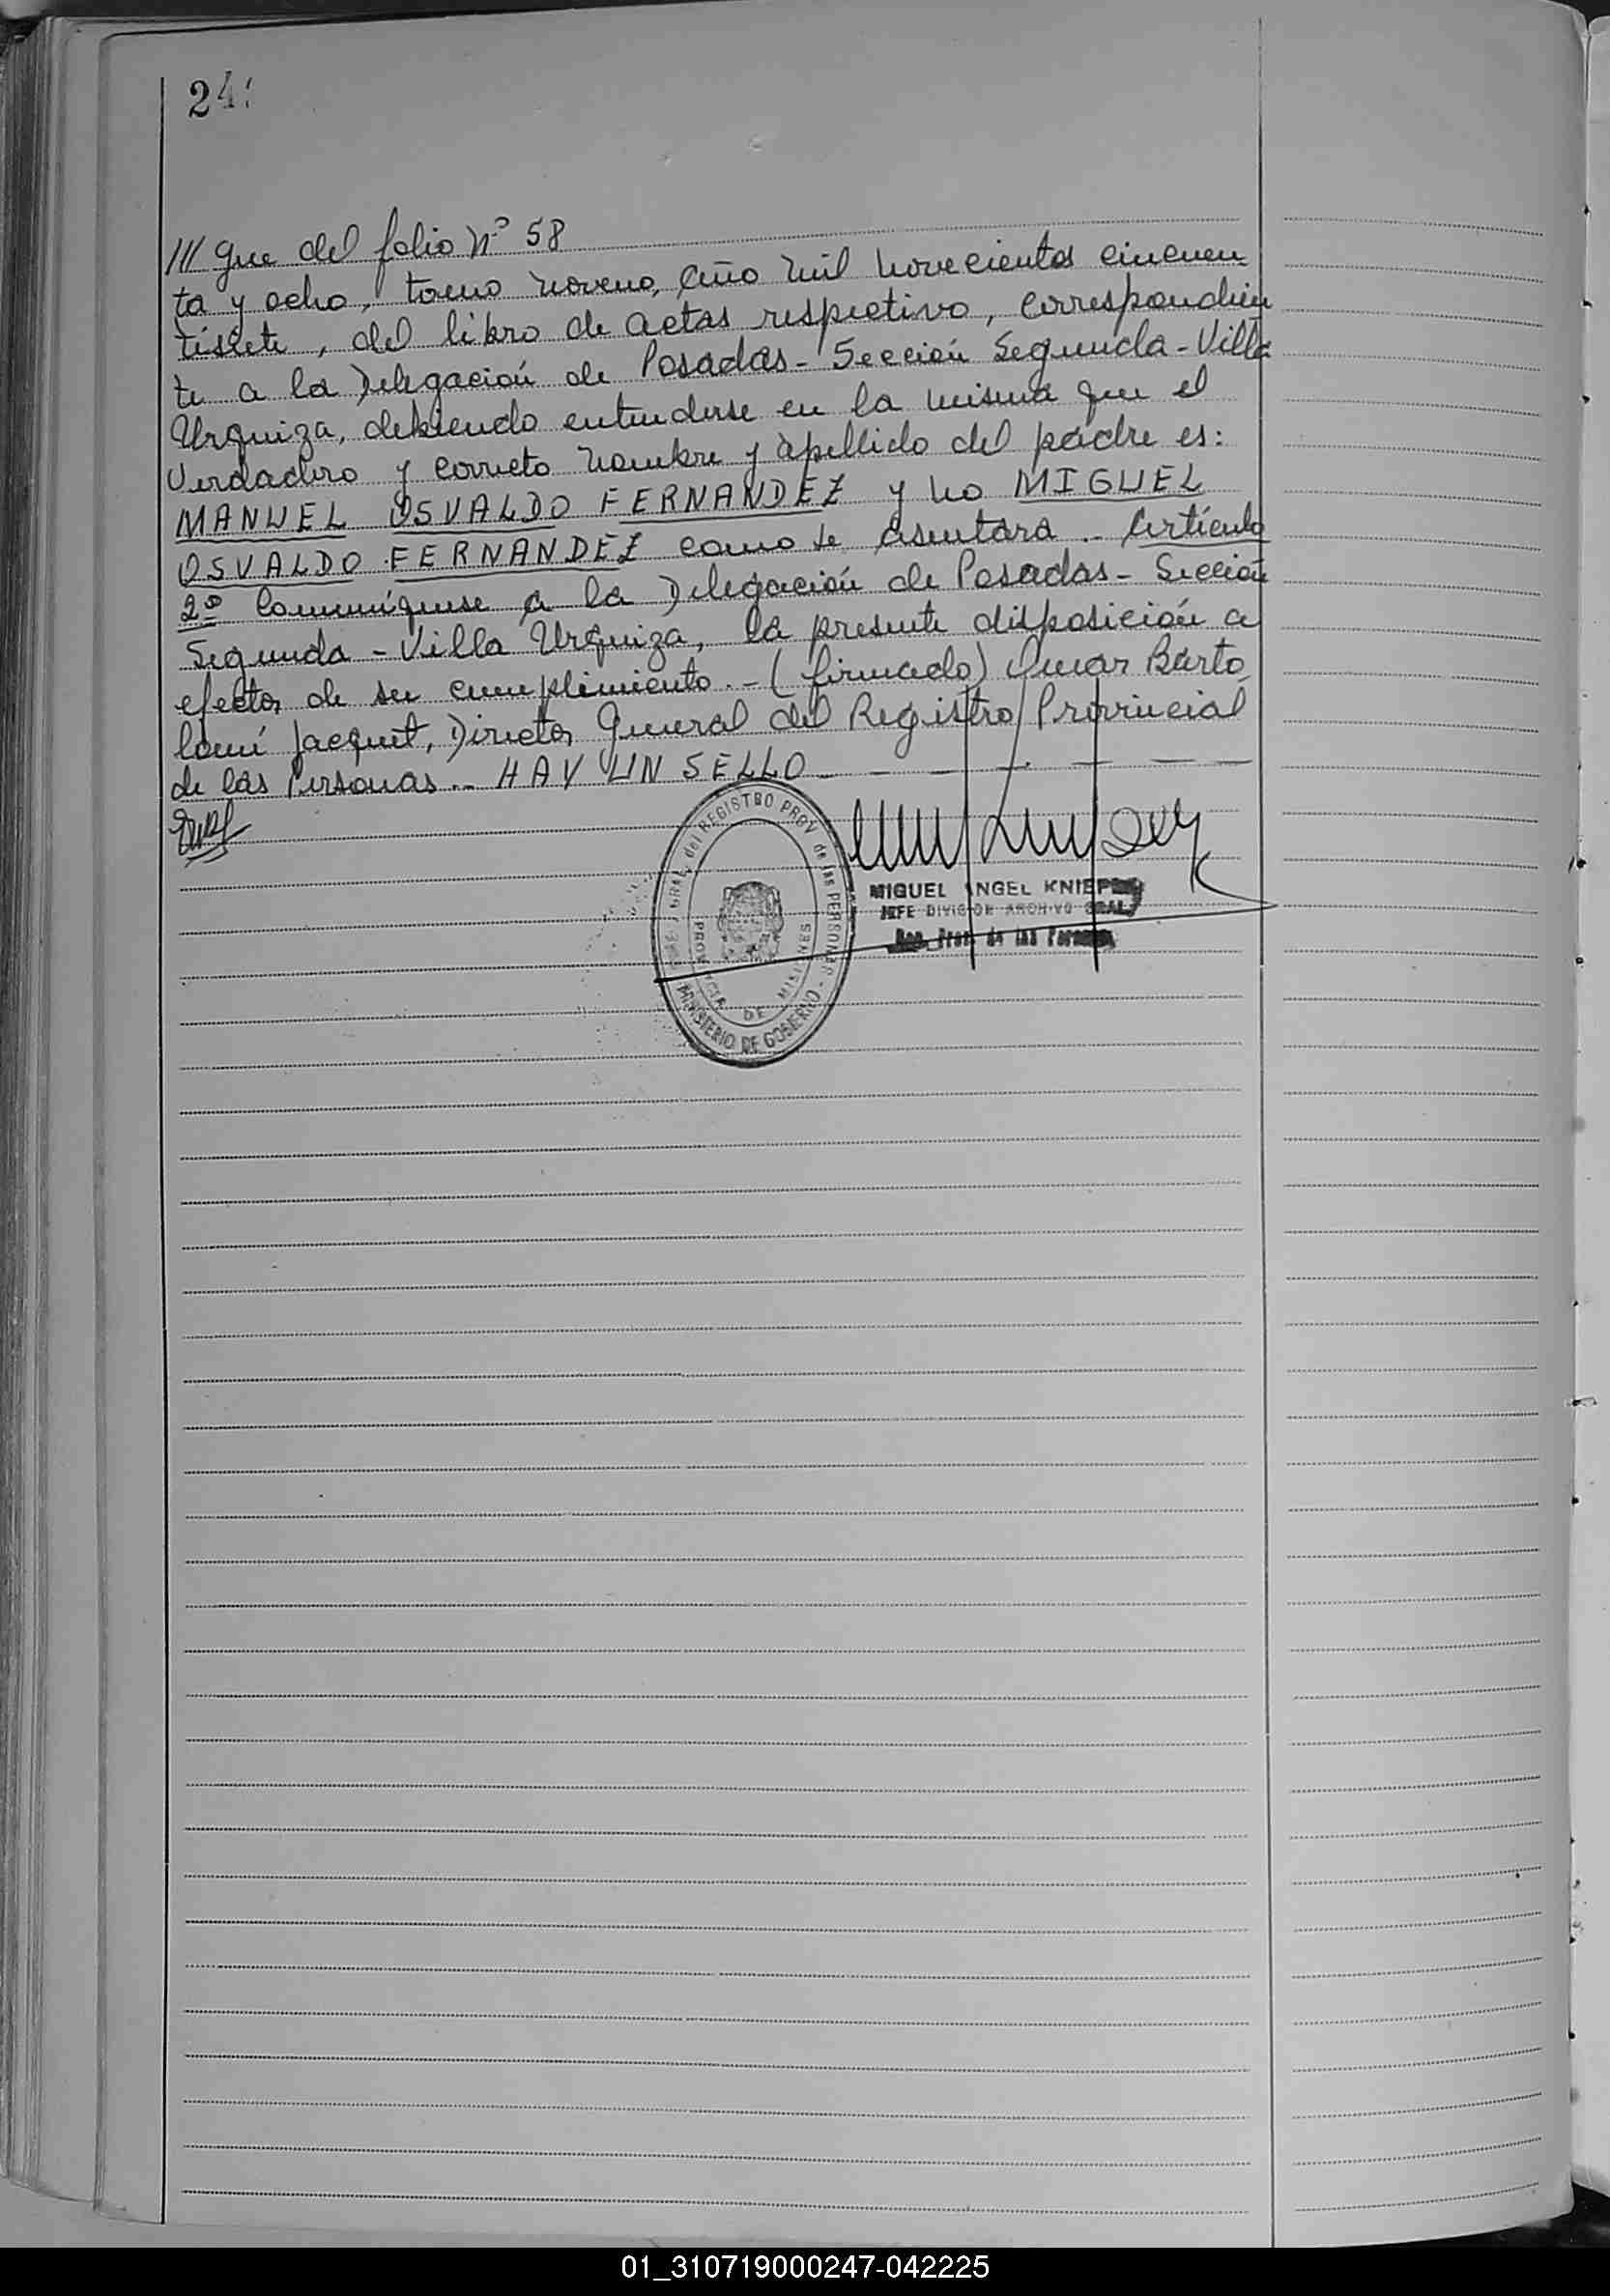 24
/// gue del folio Nº 58
ta y ocho, tomo noveno, año mil novecientos cincuen
tisiete, del libro de actas respectivo, correspondien
te a la Delegación de Posadas - Sección Segunda - Villa
Urquiza, debiendo entenderse en la misma que el
verdadero y correcto nombre y apellido del padre es:
MANUEL OSVALDO FERNANDEZ y no MIGUEL
OSVALDO FERNANDEZ como se asentara.- Artículo
2º Comuníquese a la Delegación de Posadas - Sección
Segunda - Villa Urquiza, la presente disposición a
efectos de su cumplimiento.- (firmado) Omar Barto
lomé Jacquet, Director General del Registro Provincial
de las Personas.- HAY UN SELLO
GRAL. del REGISTRO PROV. de las PERSONAS
PROVINCIA DE MISIONES
MINISTERIO DE GOBIERNO
MIGUEL ANGEL KNIEP
JEFE DIVISION ARCHIVO GRAL.
Reg. Prov. de las Personas
01_310719000247-042225